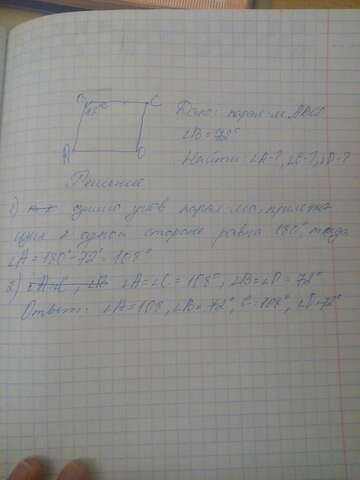 B C
A D
Дано: парал-м ABCD
∠B=72°
Найти: ∠A-?, ∠C-?, ∠D-?
Решение
1) сумма углов парал-ма, прилежа
щих к одной стороне равна 180°, тогда
∠A=180°-72°=108°
2) ∠A=C, ∠B ∠A=∠C=108°, ∠B=∠D=72°
Ответ: ∠A=108, ∠B=72°, C=108°, ∠D=72°